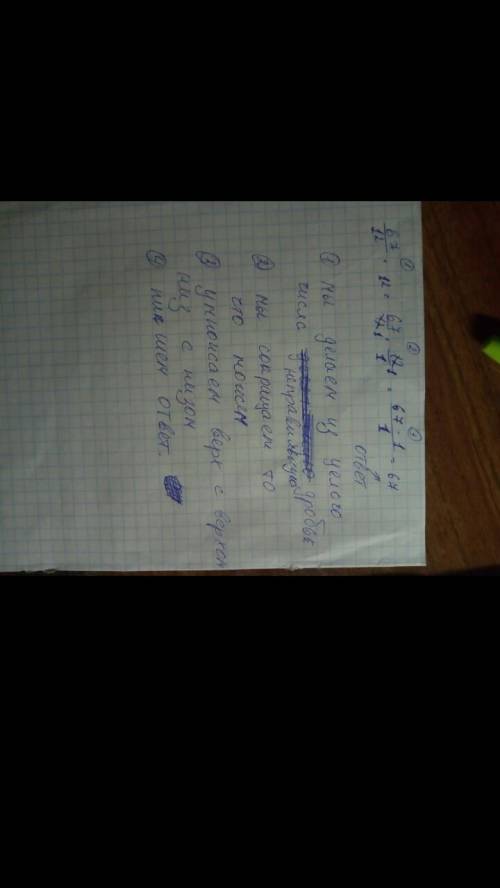 ① ② ③
67/12 · 12 = 67/12 1 · 12 1/1 = 67 · 1/1 = 67
ответ
① мы делаем из целого
числа неправильную дробь
② мы сокращаем то
что можем
③ умножаем верх с верхом
низ с низом
④ пишем ответ.